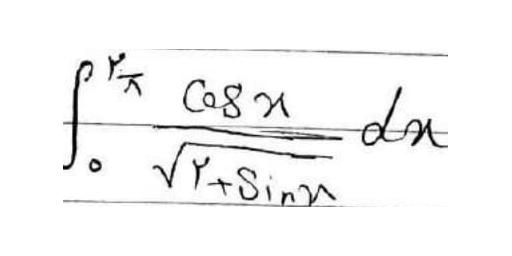 ∫₀^{۲π} cos x / √(۲+sin x) dx